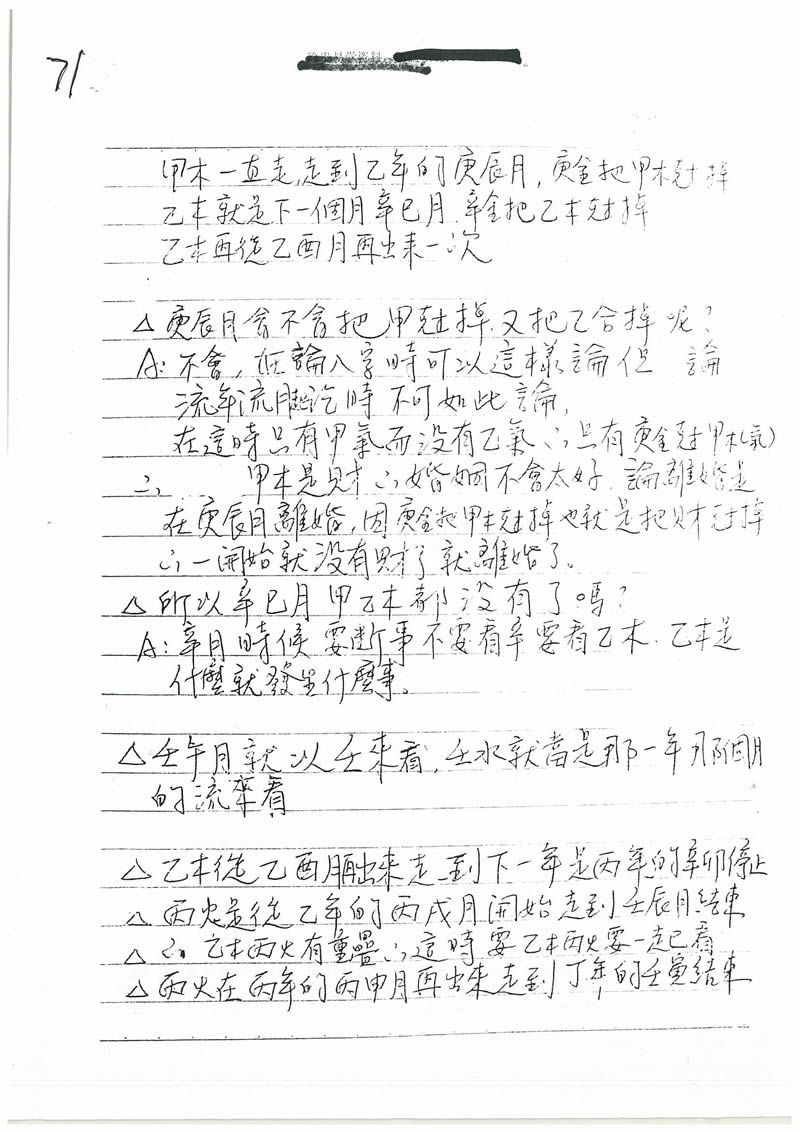 71
甲木一直走,走到乙年的庚辰月,庚金把甲木尅掉
乙木就是下一個月辛巳月 辛金把乙木尅掉
乙木再從乙酉月再出來一次
△庚辰月會不會把甲尅掉.又把乙合掉呢?
A:不會,在論八字時可以這樣論但 論
流年流月 時不可如此論,
在這時只有甲氣而沒有乙氣∴只有庚金尅甲木(氣)
∴ 甲木是財∴婚姻不會太好.論離婚是
在庚辰月離婚,因庚金把甲木尅掉也就是把財尅掉
∴一開始就沒有財了就離婚了。
△所以辛巳月甲乙木都沒有了嗎?
A:辛月時候要斷事不要看辛要看乙木.乙木是
什麼就發生什麼事。
△壬午月就以壬來看,壬水就當是那一年那個月
的流 來看
△乙木從乙酉月再出來走到下一年是丙年的辛卯停止
△丙火是從乙年的丙戌月開始走到壬辰月結束
△∴乙木丙火有重疊∴這時要乙木丙火要一起看
△丙火在丙年的丙申月再出來走到丁年的壬寅結束